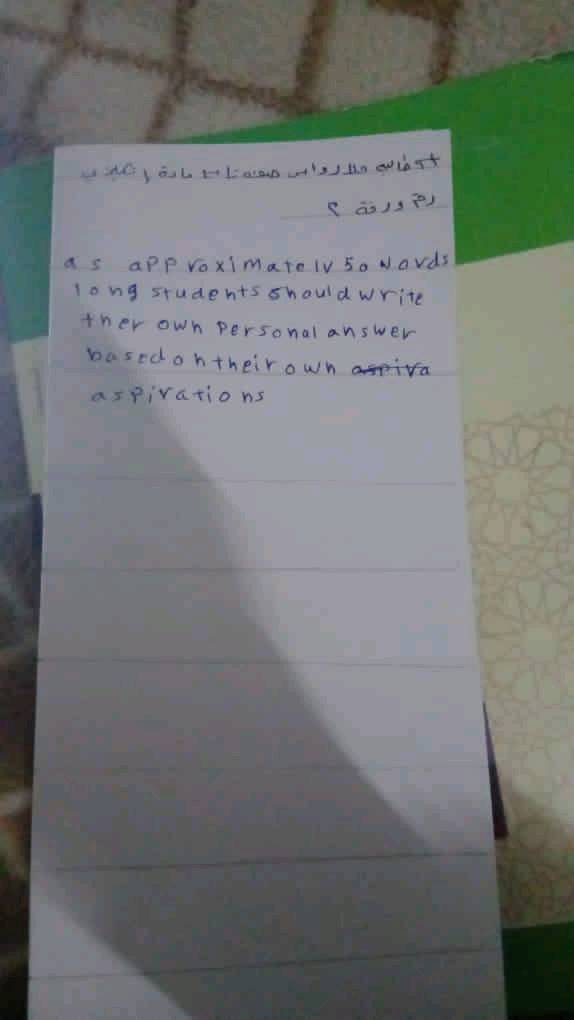 مادة
رقم ورقة ؟
as approximately 50 words
long students should write
ther own personal answer
based on their own aspira
aspirations